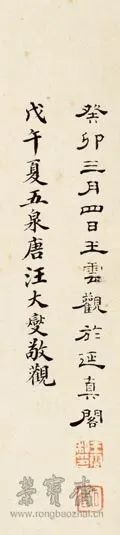 癸卯三月四日王雲觀於延真閣
戊午夏五泉唐汪大燮敬觀
榮寶齋
www.rongbaozhai.cn